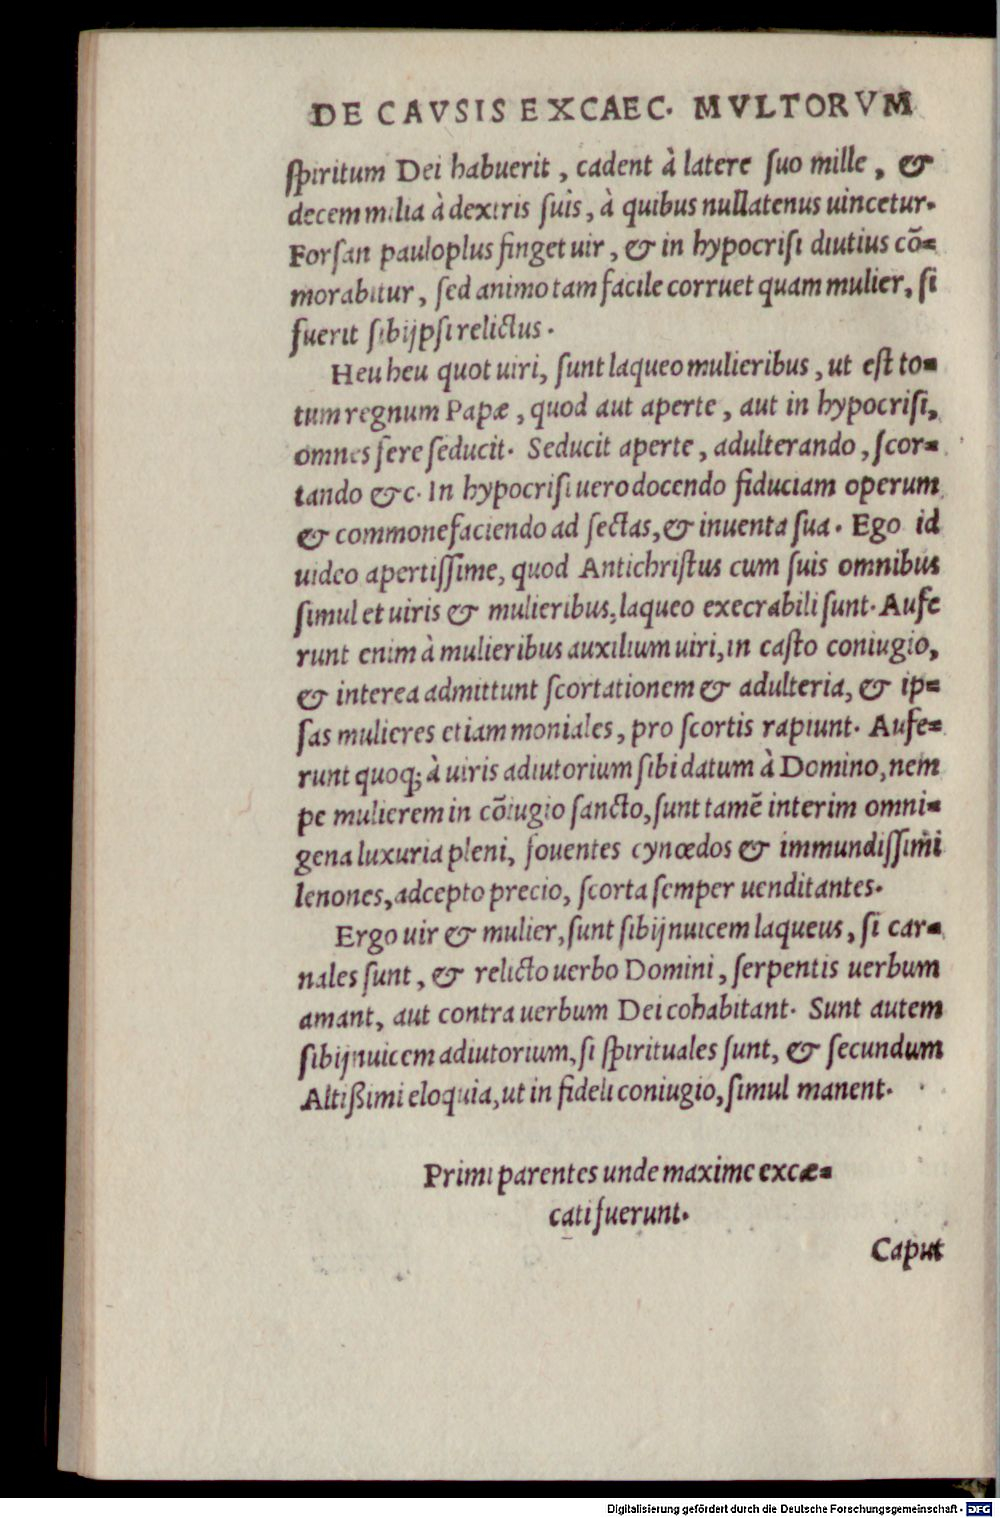 DE CAVSIS EXCAEC. MVLTORVM
ſpiritum Dei habuerit, cadent à latere ſuo mille, &
decem milia à dextris ſuis, à quibus nullatenus uincetur.
Forſan pauloplus finget uir, & in hypocriſi diutius cō=
morabitur, ſed animo tam facile corruet quam mulier, ſi
fuerit ſibijpſi relictus.
Heu heu quot uiri, ſunt laqueo mulieribus, ut eſt to=
tum regnum Papæ, quod aut aperte, aut in hypocriſi,
omnes fere ſeducit. Seducit aperte, adulterando, ſcor=
tando &c. In hypocriſi uero docendo fiduciam operum
& commonefaciendo ad ſectas, & inuenta ſua. Ego id
uideo apertiſſime, quod Antichriſtus cum ſuis omnibus
ſimul et uiris & mulieribus, laqueo execrabili ſunt. Aufe
runt enim à mulieribus auxilium uiri, in caſto coniugio,
& interea admittunt ſcortationem & adulteria, & ip=
ſas mulieres etiam moniales, pro ſcortis rapiunt. Aufe=
runt quoq; à uiris adiutorium ſibi datum à Domino, nem
pe mulierem in cōiugio ſancto, ſunt tamē interim omni=
gena luxuria pleni, fouentes cynœdos & immundiſſimi
lenones, adcepto precio, ſcorta ſemper uenditantes.
Ergo uir & mulier, ſunt ſibijnuicem laqueus, ſi car=
nales ſunt, & relicto uerbo Domini, ſerpentis uerbum
amant, aut contra uerbum Dei cohabitant. Sunt autem
ſibijnuicem adiutorium, ſi ſpirituales ſunt, & ſecundum
Altißimi eloquia, ut in fideli coniugio, ſimul manent.
Primi parentes unde maxime excæ=
cati fuerunt.
Caput
Digitalisierung gefördert durch die Deutsche Forschungsgemeinschaft - DFG